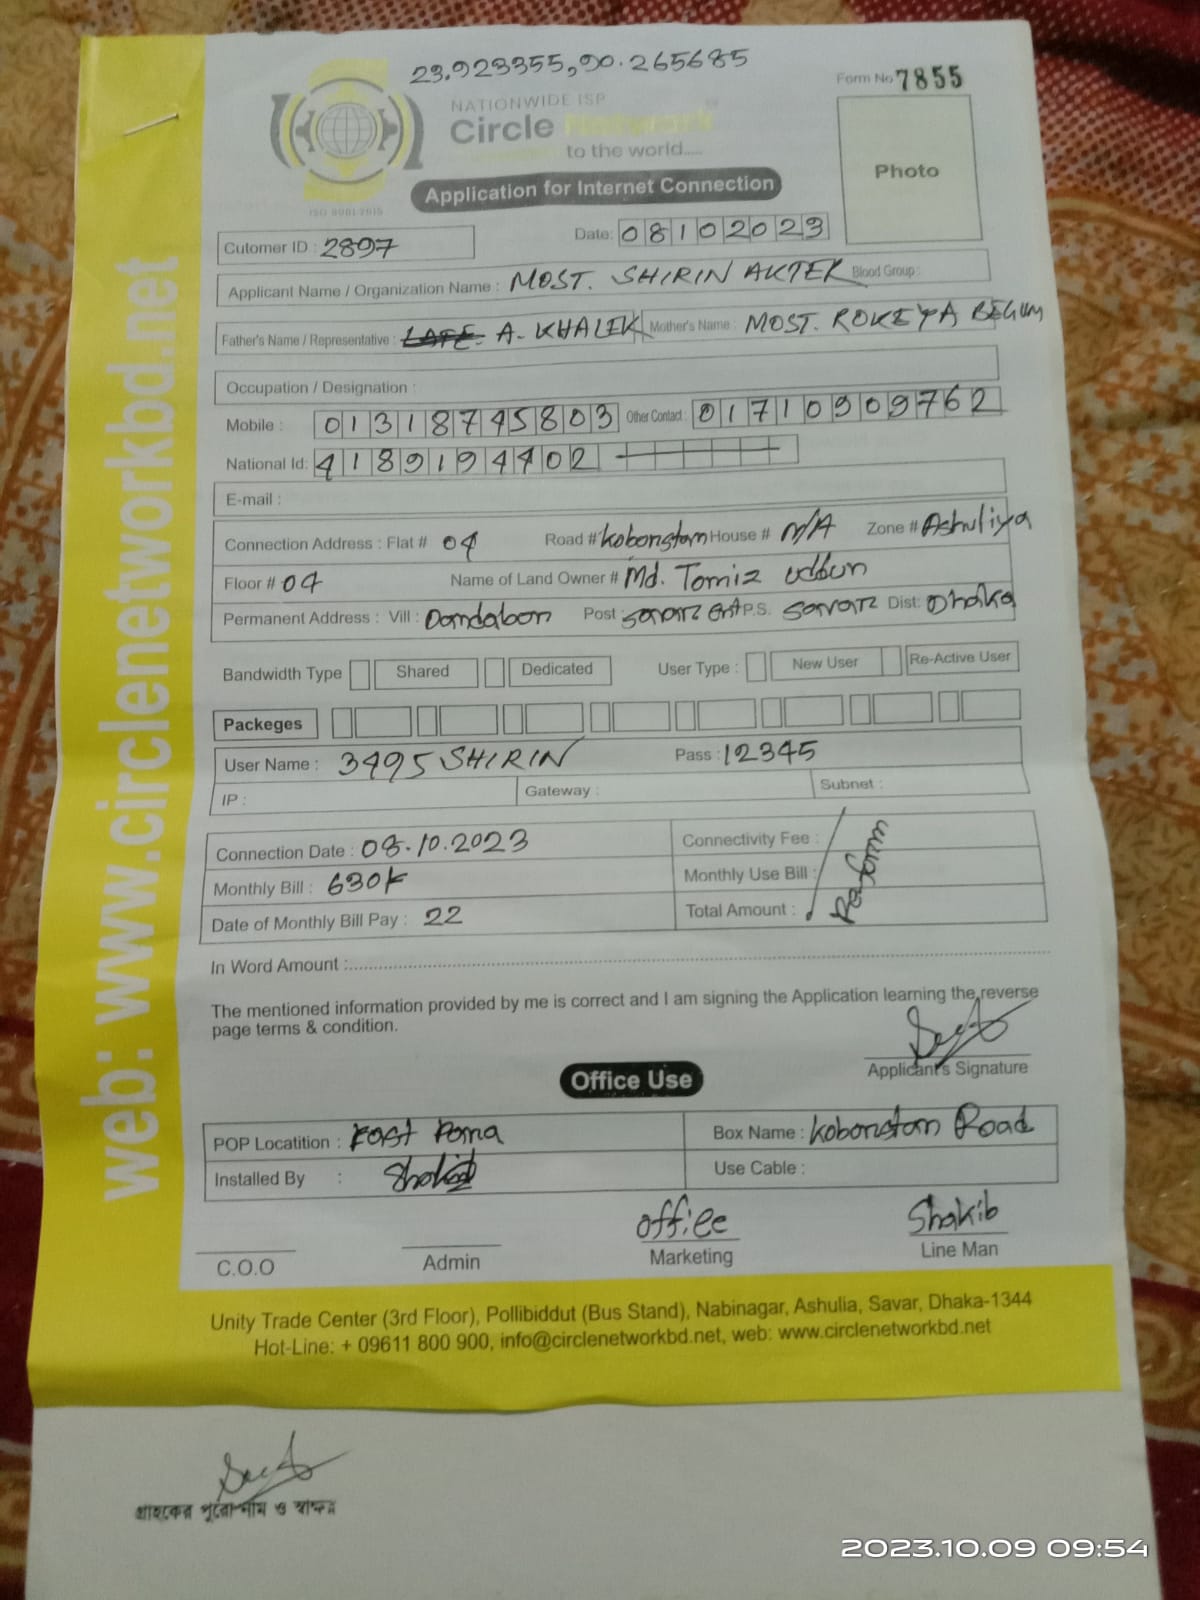 23.923355,90.265685
Form No 7855
NATIONWIDE ISP
Circle Network
to the world.....
Photo
Application for Internet Connection
ISO 9001:2015
Date: 08102023
Cutomer ID : 2897
Applicant Name / Organization Name : MOST. SHIRIN AKTER Blood Group :
Father's Name / Representative : A. KHALEK Mother's Name : MOST. ROKEYA BEGUM
Occupation / Designation :
Mobile : 01318745803 Other Contact : 01710909762
National Id: 4189194402
E-mail :
Connection Address : Flat # 04 Road # kobonstam House # N/A Zone # Ashuliya
Floor # 04 Name of Land Owner # Md. Tomiz uddun
Permanent Address : Vill : Dandabon Post : P.S. savar Dist: Dhaka
Bandwidth Type Shared Dedicated User Type : New User Re-Active User
Packeges
User Name : 3495 SHIRIN Pass : 12345
IP : Gateway : Subnet :
Connection Date : 08.10.2023 Connectivity Fee :
Monthly Bill : 630 Monthly Use Bill :
Date of Monthly Bill Pay : 22 Total Amount :
In Word Amount :
The mentioned information provided by me is correct and I am signing the Application learning the reverse
page terms & condition.
Applicant's Signature
Office Use
POP Locatition : Box Name : kobonstam Road
Installed By : Shakib Use Cable :
office Shakib
C.O.O Admin Marketing Line Man
Unity Trade Center (3rd Floor), Pollibiddut (Bus Stand), Nabinagar, Ashulia, Savar, Dhaka-1344
Hot-Line: + 09611 800 900, info@circlenetworkbd.net, web: www.circlenetworkbd.net
web: www.circlenetworkbd.net
গ্রাহকের পুরো নাম ও স্বাক্ষর
2023.10.09 09:54